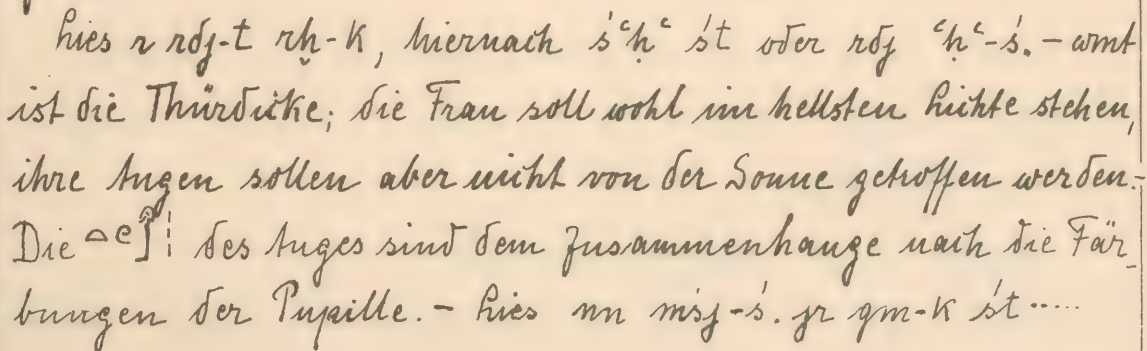 Lies r rdj-t rḫ-k, hiernach śꜥḥꜥ śt oder rdj ꜥḥꜥ-ś. – wmt
ist die Thürdicke; die Frau soll wohl im hellsten Lichte stehen,
ihre Augen sollen aber nicht von der Sonne getroffen werden. –
Die des Auges sind dem Zusammenhange nach die Fär-
bungen der Pupille. – Lies nn mśj-ś. jr gm-k śt .....